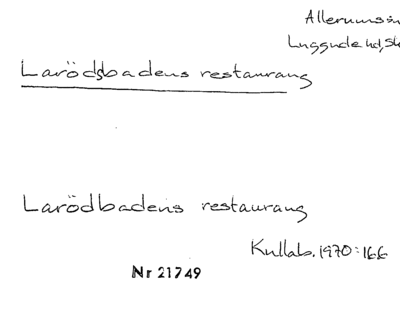 Allerums
Luggude hd, Sk
Larödsbadens restaurang
Larödbadens restaurang
Kullab. 1970:166
Nr 21749